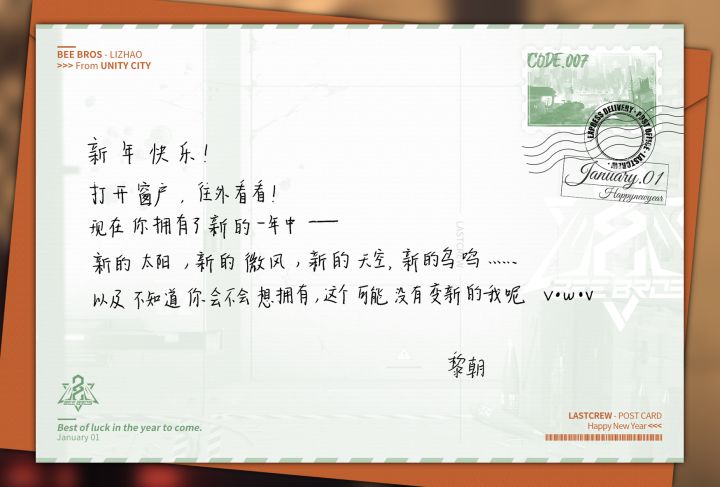 BEE BROS - LIZHAO
>>> From UNITY CITY
CODE.007
EXPRESS DELIVERY · POST OFFICE · LASTCREW ·
January.01
Happynewyear
新年快乐!
打开窗户，往外看看!
现在你拥有了新的一年中——
新的太阳，新的微风，新的天空，新的鸟鸣……
以及不知道你会不会想拥有，这个可能没有变新的我呢 v·w·v
黎朝
LASTCREW
BEE BROS
Best of luck in the year to come.
January 01
LASTCREW - POST CARD
Happy New Year <<<